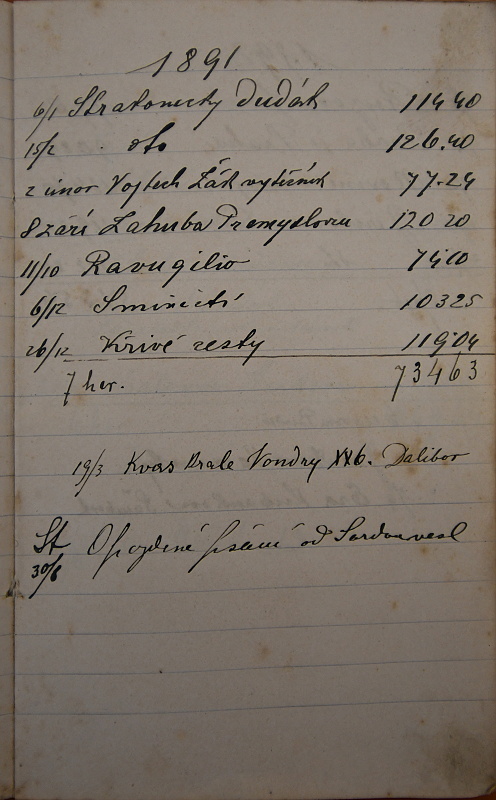 1891
6/1 Strakonický Dudák 114 40
15/2 . oto 126.40
2 únor Vojtěch Žák výtěčník 77.24
8 září Zahuba Přemyslovců 120 20
11/10 Ravugilio
6/12 Smiřičtí 103 25
26/12 Křivé cesty 119.04
7 her. 734 63
19/3 Kvas Krale Vondry XXVI. Dalibor
30/6 Opozdené psaní od Sardou